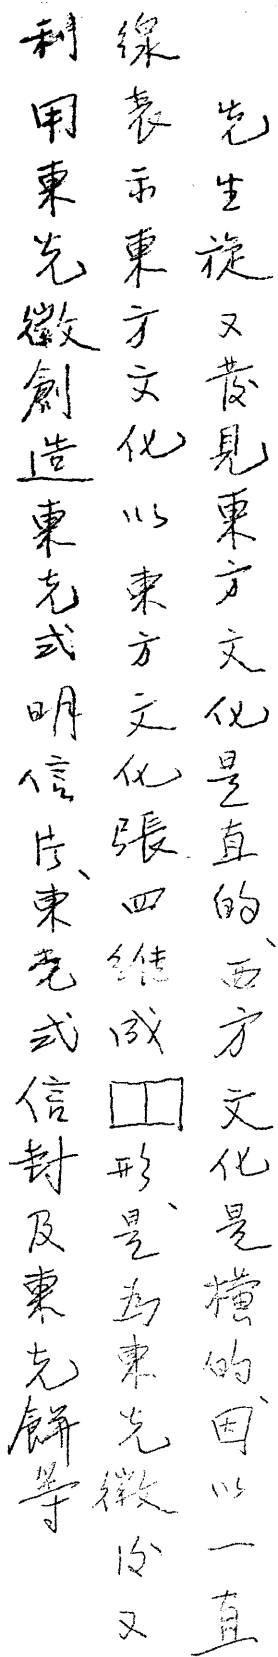 先生旋又發見東方文化是直的、西方文化是橫的、因以一直
線表示東方文化以東方文化張四維成形、是為東光徽後又
利用東光徽創造東光式明信片、東光式信封及東光餅等